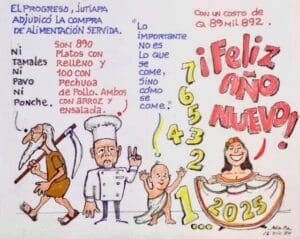 EL PROGRESO, JUTIAPA
ADJUDICÓ LA COMPRA
DE ALIMENTACIÓN SERVIDA.
NI
TAMALES
NI
PAVO
NI
PONCHE.
SON 890
PLATOS CON
RELLENO Y
100 CON
PECHUGA
DE POLLO. AMBOS
CON ARROZ Y
ENSALADA.
"LO
IMPORTANTE
NO ES
LO QUE
SE
COME,
SINO
CÓMO
SE
COME."
CON UN COSTO DE
Q 89 MIL 892.
¡FELIZ
AÑO
NUEVO!
7
6
5
4
3
2
1...
2025